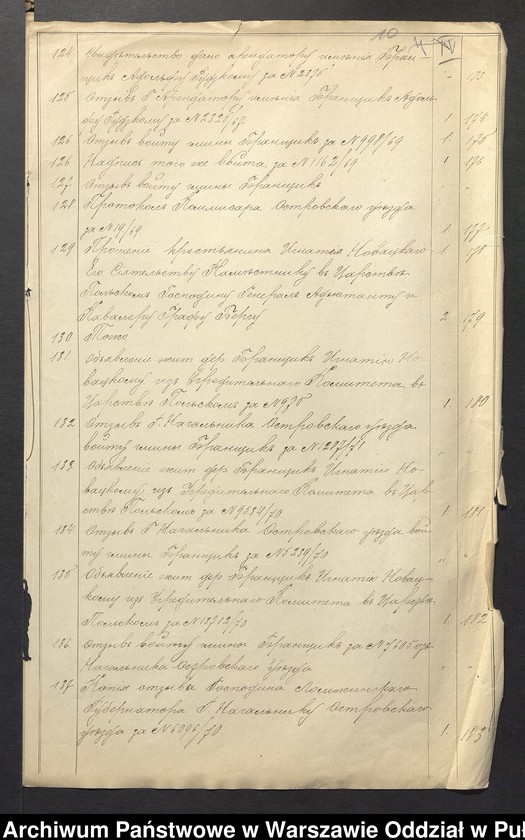 10
124 Свидѣтельство дано арендатору имѣнія Бран-
щикъ Адольфу Рудзкому за N 2378 " 173
125 Отзывъ Г Арендатору имѣнія Бранщикъ Адоль-
фу Рудзкому за N 2326/67 1 174
126 Отзывъ войту гмины Бранщикъ за N 998/69 1 175
126 Надпись того же войта за N 1162/69 1 176
127 Отзывъ войту гмины Бранщикъ " "
128 Протоколъ Коммисара Островскаго уѣзда
за N 19/69 1 177
129 Прошеніе крестьянина Игнатія Новацкаго 1 178
Его Сіятельству Намѣстнику въ Царствѣ
Польскомъ Господину Генералъ Адъютанту и
Кавалеру Графу Бергу 2 179
130 Тоже
131 Объявленіе жит дер Бранщикъ Игнатію Но-
вацкому изъ Учредительнаго Комитета въ
Царствѣ Польскомъ за N 978 1 180
132 Отзывъ Г. Начальника Островскаго уѣзда
войту гмины Бранщикъ за N 1287/71 " "
133 Объявленіе жит дер Бранщикъ Игнатію Но-
вацкому, изъ Учредительнаго Комитета въ Цар-
ствѣ Польскомъ за N 9534/70 1 181
134 Отзывъ Г Начальника Островскаго уѣзда вой-
ту гмины Бранщикъ за N 5289/70 " "
135 Объявленіе жит дер Бранщикъ Игнатію Новац-
кому изъ Учредительнаго Комитета въ Царствѣ
Польскомъ за N 12712/70 1 182
136 Отзывъ войту гмины Бранщикъ за N 7605 отъ
Начальника Островскаго уѣзда " "
137 Копія отзыва Господина Ломжинскаго
Губернатора Г. Начальнику Островскаго
уѣзда за N 6096/70 1. 183
Archiwum Państwowe w Warszawie Oddział w Puł